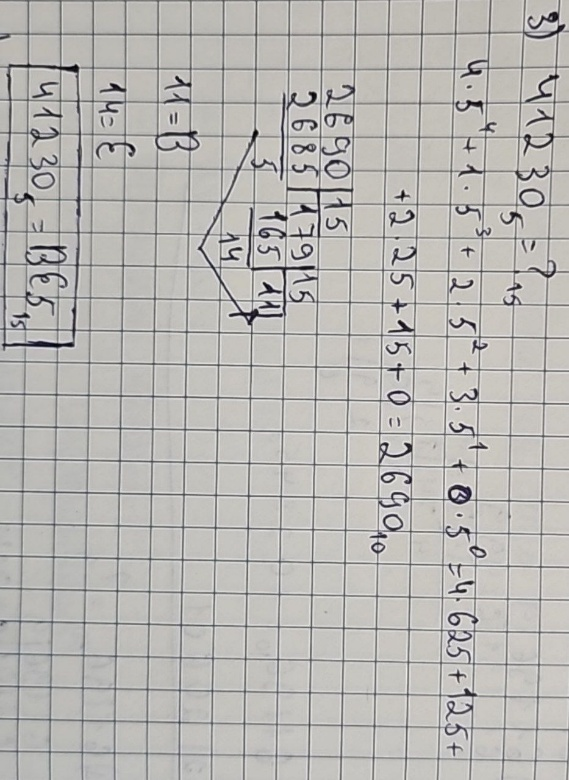 3) 41230₅ = ?₁₅
4·5⁴ + 1·5³ + 2·5² + 3·5¹ + 0·5⁰ = 4·625 + 125 +
+ 2·25 + 15 + 0 = 2690₁₀
2690 | 15
2685 | 179 | 15
5 165 | 11
14
11 = B
14 = E
41230₅ = BE5₁₅